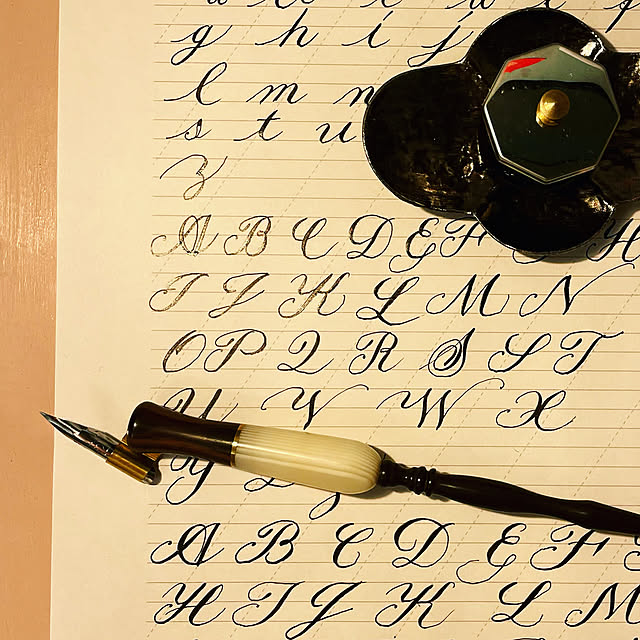 g h i j
l m n
s t u
z
A B C D E F H
I J K L M N
O P Q R S S T
U V W X
y z
A B C D E F
H I J K L M